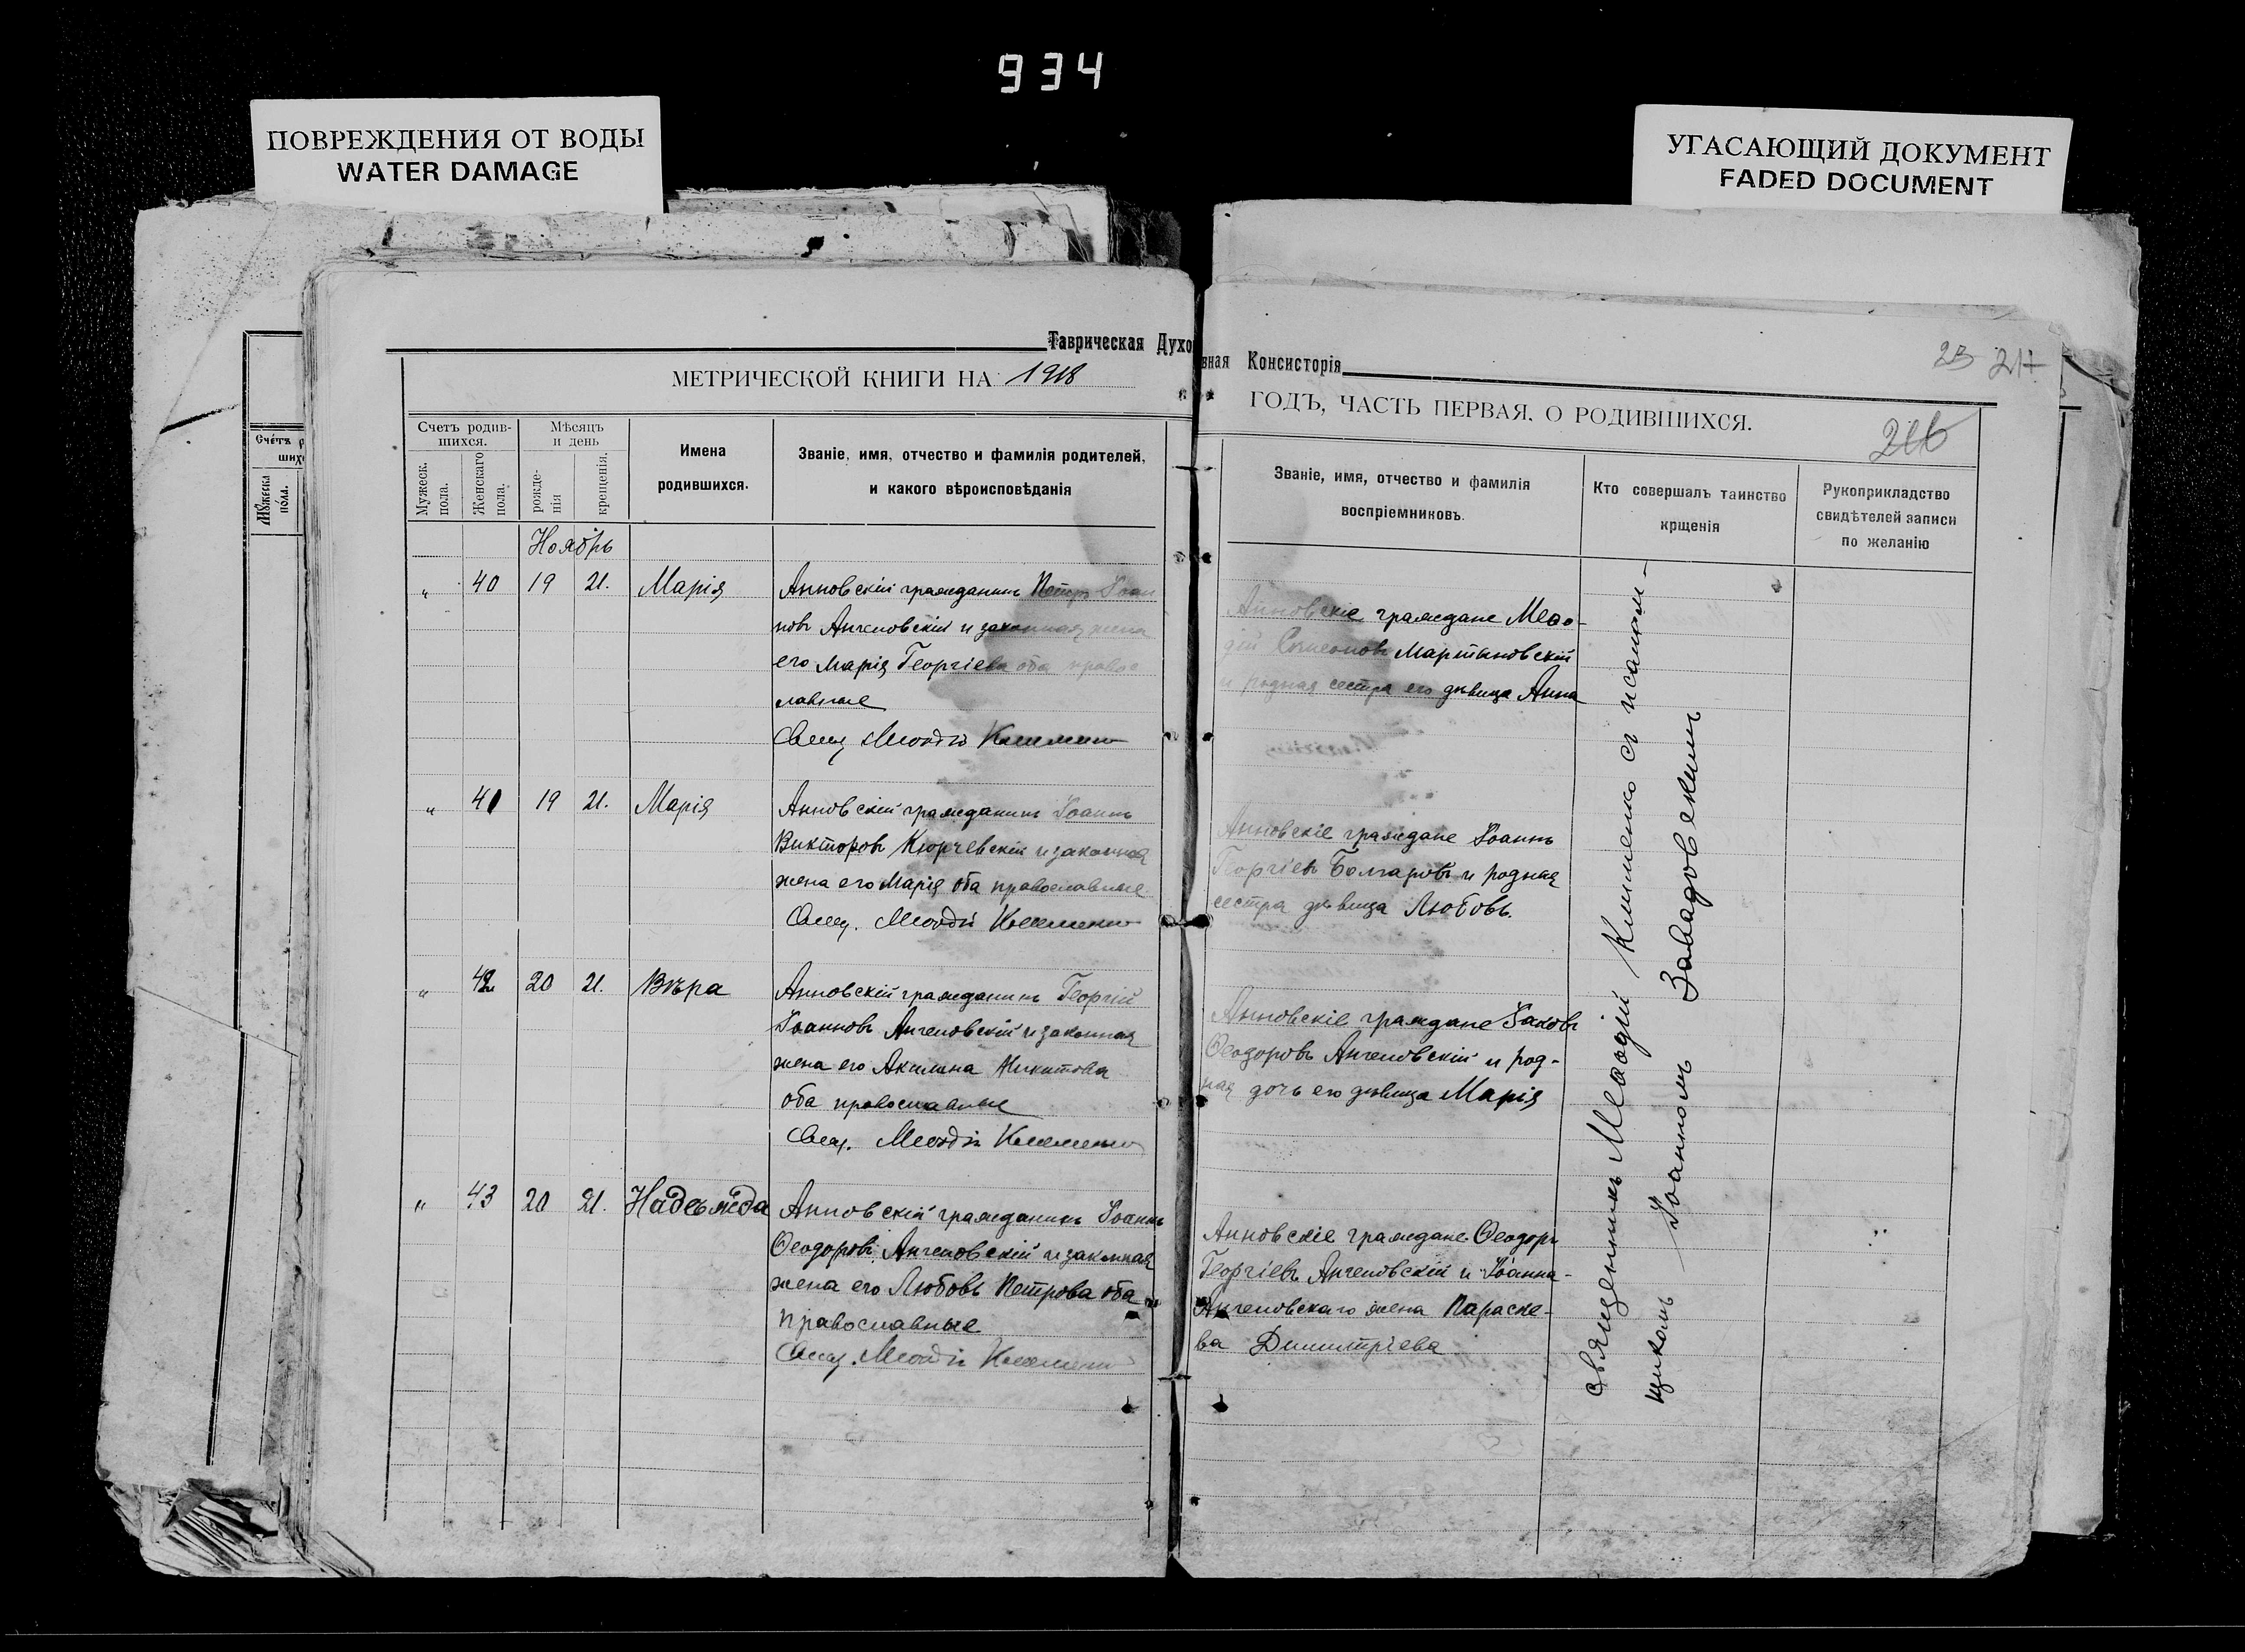 934
ПОВРЕЖДЕНИЯ ОТ ВОДЫ
WATER DAMAGE
УГАСАЮЩИЙ ДОКУМЕНТ
FADED DOCUMENT
Таврическая Духовная Консисторія
МЕТРИЧЕСКОЙ КНИГИ НА 1918
ГОДЪ, ЧАСТЬ ПЕРВАЯ, О РОДИВШИХСЯ.
Счетъ родив-
шихся.
Мужеск.
пола.
Женскаго
пола.
Мѣсяцъ
и день
рожде-
нія
крещенія.
Имена
родившихся.
Званіе, имя, отчество и фамилія родителей,
и какого вѣроисповѣданія
Званіе, имя, отчество и фамилія
воспріемниковъ.
Кто совершалъ таинство
крщенія
Рукоприкладство
свидѣтелей записи
по желанію
Ноябрь
„ 40 19 21. Марія
Анновскій гражданинъ Петръ Іоан
новъ Ангеловскій и законная жена
его Марія Георгіева оба правос
лавные
Свящ Меѳодій Клименко
Анновскіе граждане Меѳо-
дій Симеоновъ Мартыновскій
и родная сестра его дѣвица Анна
„ 41 19 21. Марія
Анновскій гражданинъ Іоаннъ
Викторовъ Кюрчевскій и законная
жена его Марія оба православные
Свящ. Меѳодій Клименко
Анновскіе граждане Іоаннъ
Георгіевъ Болгаровъ и родная
сестра дѣвица Любовь.
„ 42 20 21. Вѣра
Анновскій гражданинъ Георгій
Іоанновъ Ангеловскій и законная
жена его Акилина Никитова
оба православные
Свящ. Меѳодій Клименко
Анновскіе граждане Іаковъ
Ѳеодоровъ Ангеловскій и род-
ная дочь его дѣвица Марія
„ 43 20 21. Надежда
Анновскій гражданинъ Іоаннъ
Ѳеодоровъ Ангеловскій и законная
жена его Любовь Петрова оба
православные
Свящ. Меѳодій Клименко
Анновскіе граждане Ѳеодоръ
Георгіевъ Ангеловскій и Іоанна
Ангеловскаго жена Параске-
ва Димитріева
Священникъ Меѳодій Клименко съ псалом-
щикомъ Іоанномъ Завадовскимъ